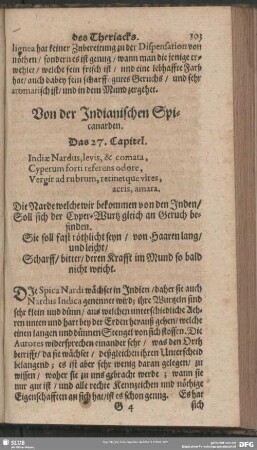 des Theriacks. 103
lignea hat keiner Zubereitung zu der Dispensation von
nöthen / sondern es ist genug / wann man die jenige er-
wehlet / welche fein frisch ist / und eine lebhaffte Farb
hat / auch dabey fein scharff / gutes Geruchs / und sehr
aromatisch ist / und in dem Mund zergehet.
Von der Indianischen Spi-
canarden.
Das 27. Capitel.
Indiæ Nardus, levis, & comata,
Cyperum forti referens odore,
Vergit ad rubrum, retinetque vires,
acris, amara.
Die Narde welche wir bekommen von den Inden /
Soll sich der Cyper-Wurtz gleich an Geruch be-
finden.
Sie soll fast röthlicht seyn / von Haaren lang /
und leicht /
Scharff / bitter / deren Krafft im Mund so bald
nicht weicht.
DJe Spica Nardi wächset in Indien / daher sie auch
Nardus Indica genennet wird; ihre Wurtzeln sind
sehr klein und dünn / aus welchen unterschiedliche Aeh-
ren unten und hart bey der Erden herauß gehen / welche
einen langen und dünnen Stengel von sich stossen. Die
Autores widersprechen einander sehr / was den Orth
betrifft / da sie wächset / deßgleichen ihren Unterscheid
belangend; es ist aber sehr wenig daran gelegen / zu
wissen / woher sie zu uns gebracht werde; wann sie
nur gut ist / und alle rechte Kennzeichen und nöthige
Eigenschafften an sich hat / ist es schon genug. Es hat
G 4 sich
SLUB